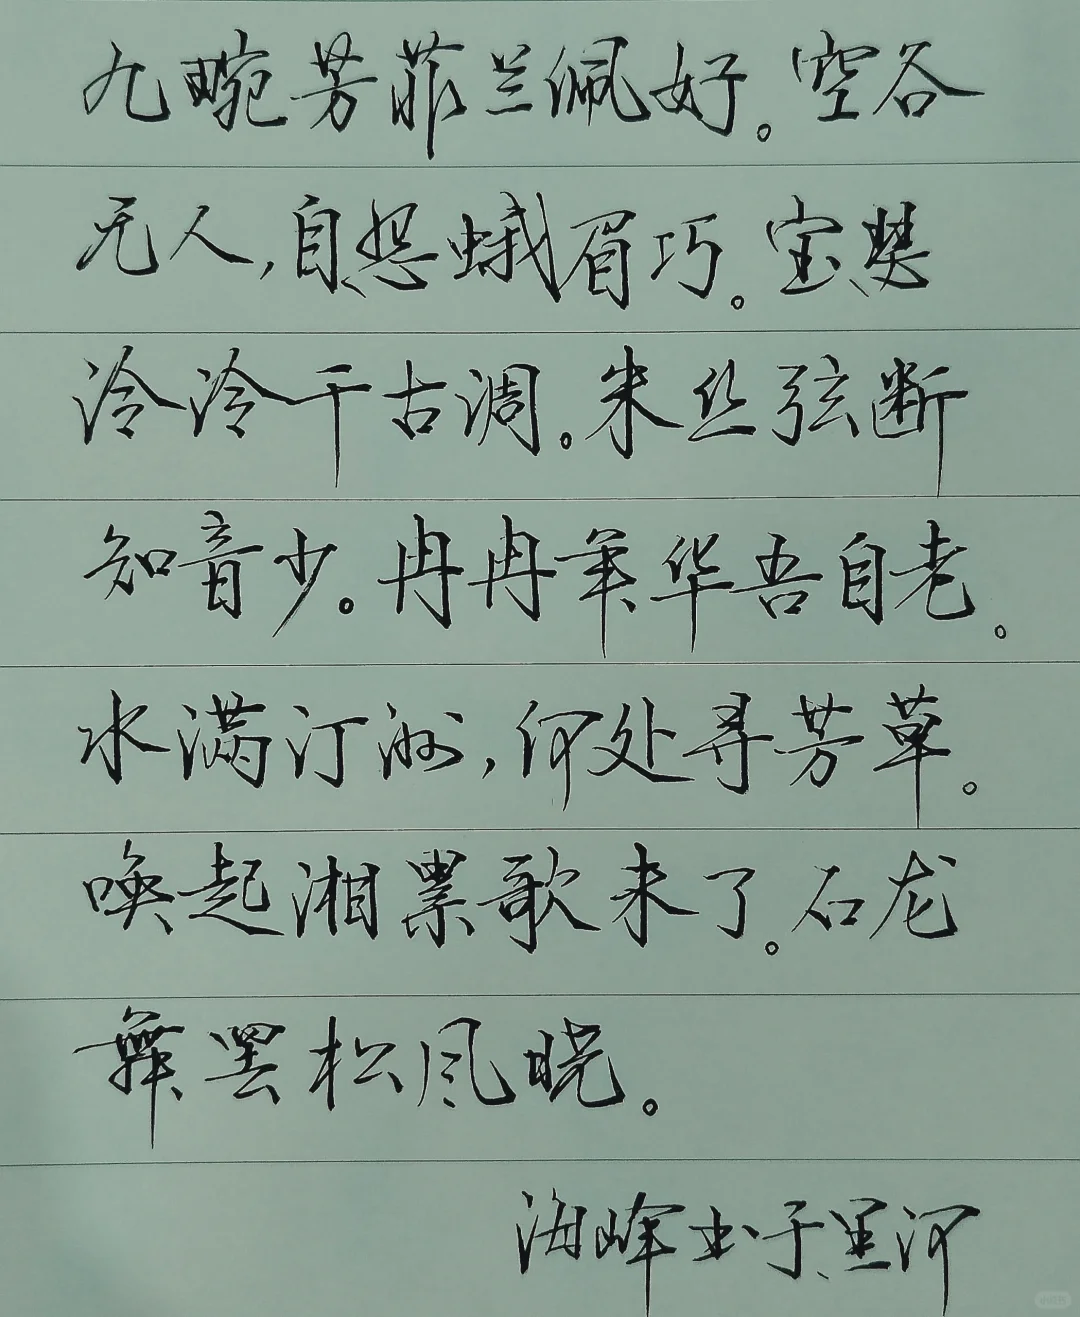 九畹芳菲兰佩好。空谷
无人,自怨蛾眉巧。宝瑟
泠泠千古调。朱丝弦断
知音少。冉冉年华吾自老。
水满汀洲,何处寻芳草。
唤起湘累歌未了。石龙
舞罢松风晓。
海峰书于里河